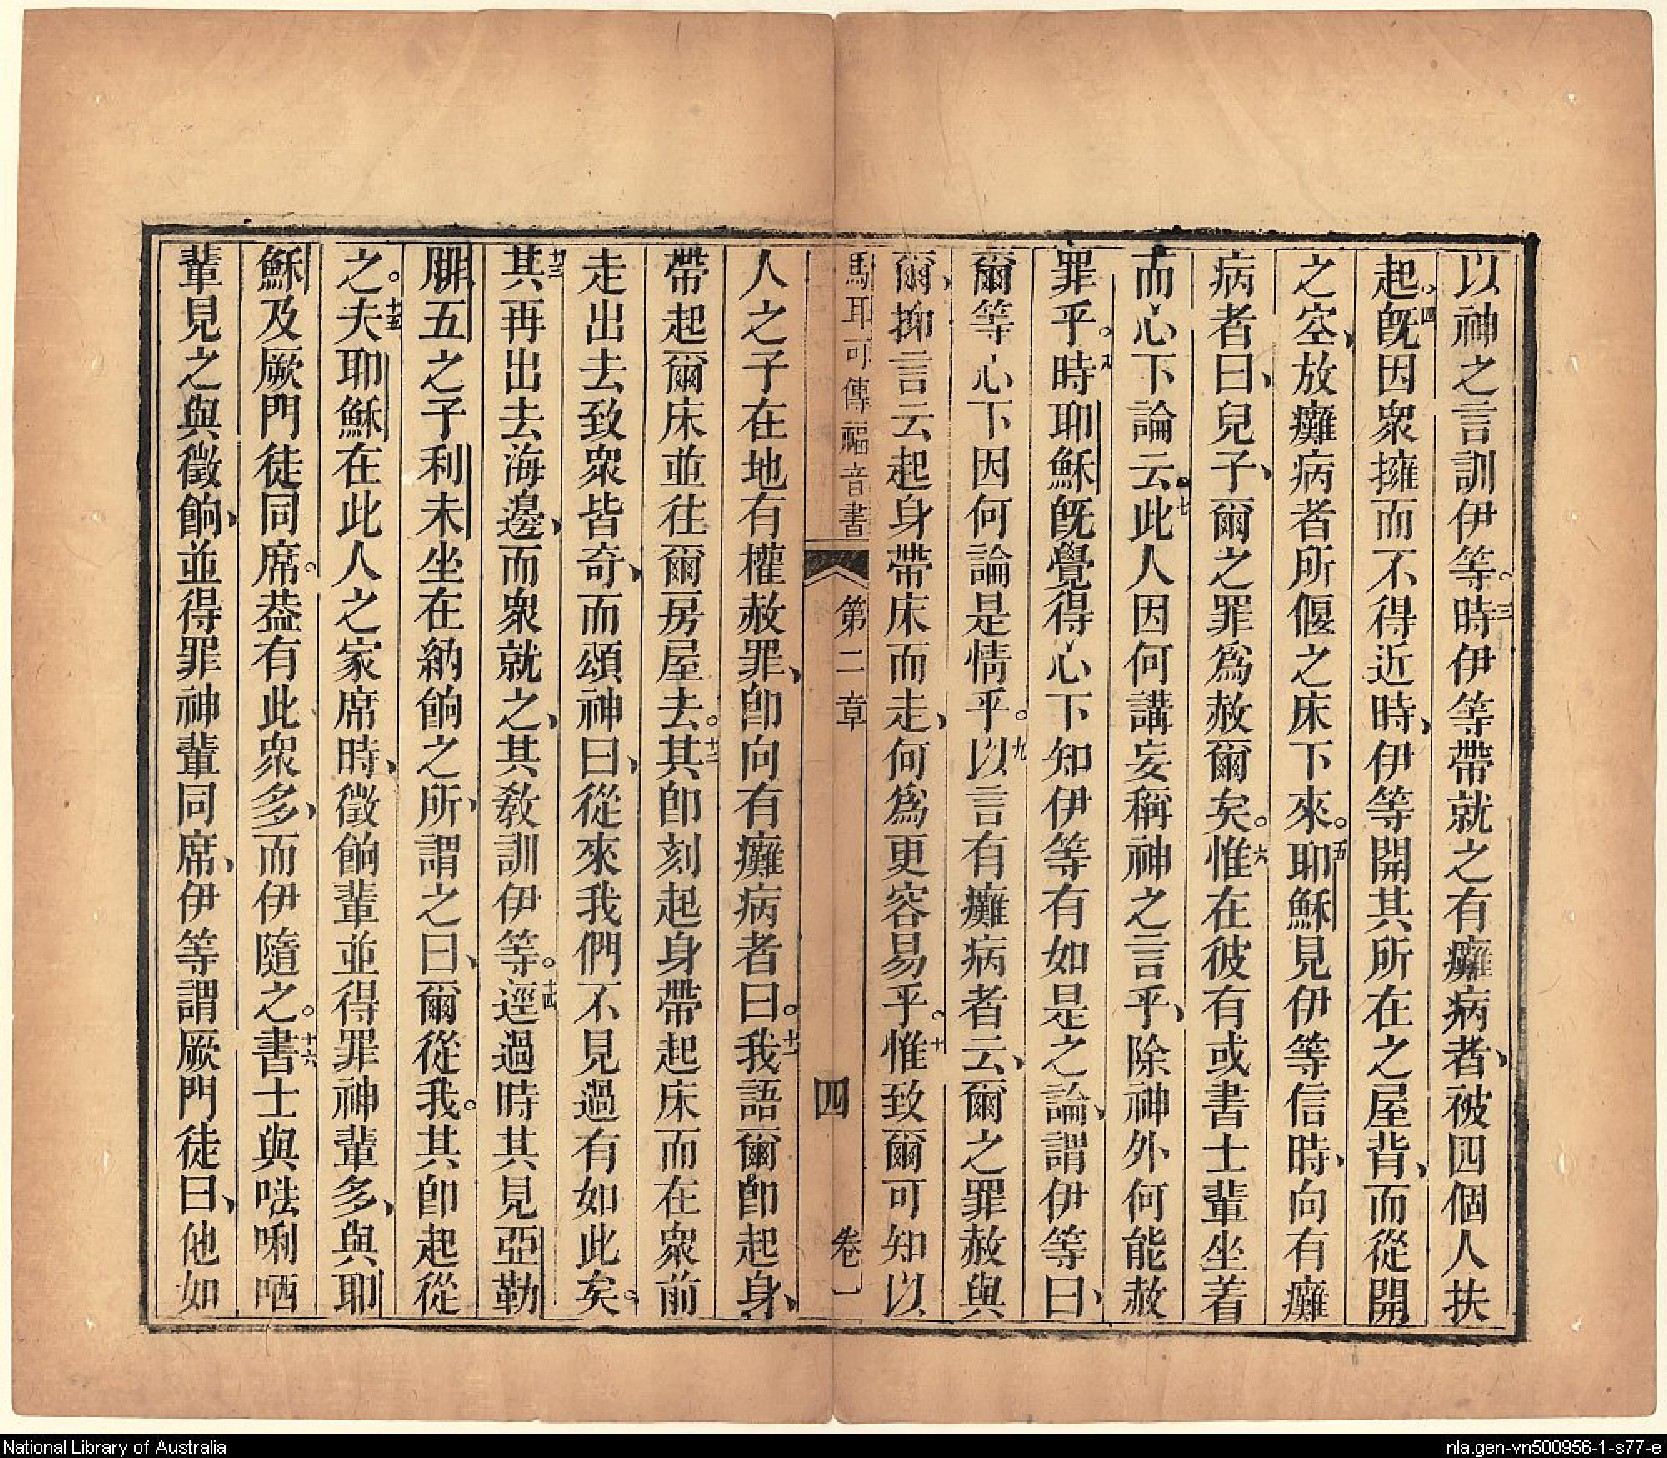 以神之言訓伊等。三時伊等帶就之有癱病者、被四個人扶
起、四旣因衆擁而不得近時、伊等開其所在之屋背、而從開
之空、放癱病者所偃之床下來。五耶穌見伊等信時、向有癱
病者曰、兒子、爾之罪爲赦爾矣。六惟在彼有或書士輩坐着
而心下論云。七此人因何講妄稱神之言乎、除神外何能赦
罪乎。八時耶穌旣覺得心下知伊等有如是之論、謂伊等曰、
爾等心下因何論是情乎。九以言有癱病者云、爾之罪赦與
爾、抑言云起身帶床而走、何爲更容易乎。十惟致爾可知以
馬耳可傳福音書 第二章 四 卷一
人之子在地有權赦罪、卽向有癱病者曰。十一我語爾卽起身、
帶起爾床並往爾房屋去。十二其卽刻起身帶起床而在衆前
走出去致衆皆奇、而頌神曰、從來我們不見過有如此矣。
十三其再出去海邊、而衆就之、其敎訓伊等。十四逕過時其見亞勒
腓五之子利未坐在納餉之所、謂之曰、爾從我。其卽起從
之。十五夫耶穌在此人之家席時、徵餉輩並得罪神輩多、與耶
穌及厥門徒同席。葢有此衆多、而伊隨之。十六書士與𠵽唎哂
輩見之與徵餉、並得罪神輩同席、伊等謂厥門徒曰、他如
National Library of Australia
nla.gen-vn500956-1-s77-e